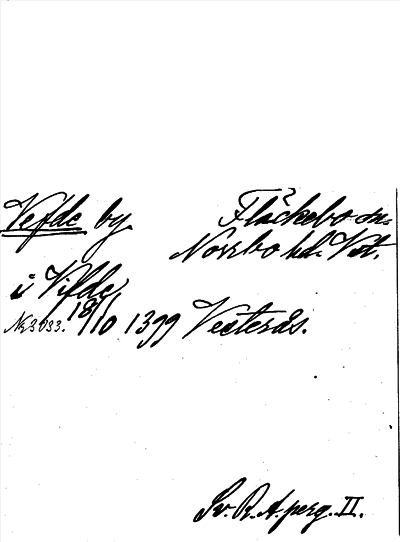 Vefde by Fläckebo sn.
Norrbo hd. Vst.
i Vifde
N:o 3033. 18/10 1399 Vesterås.
Sv. R. A. perg. II.